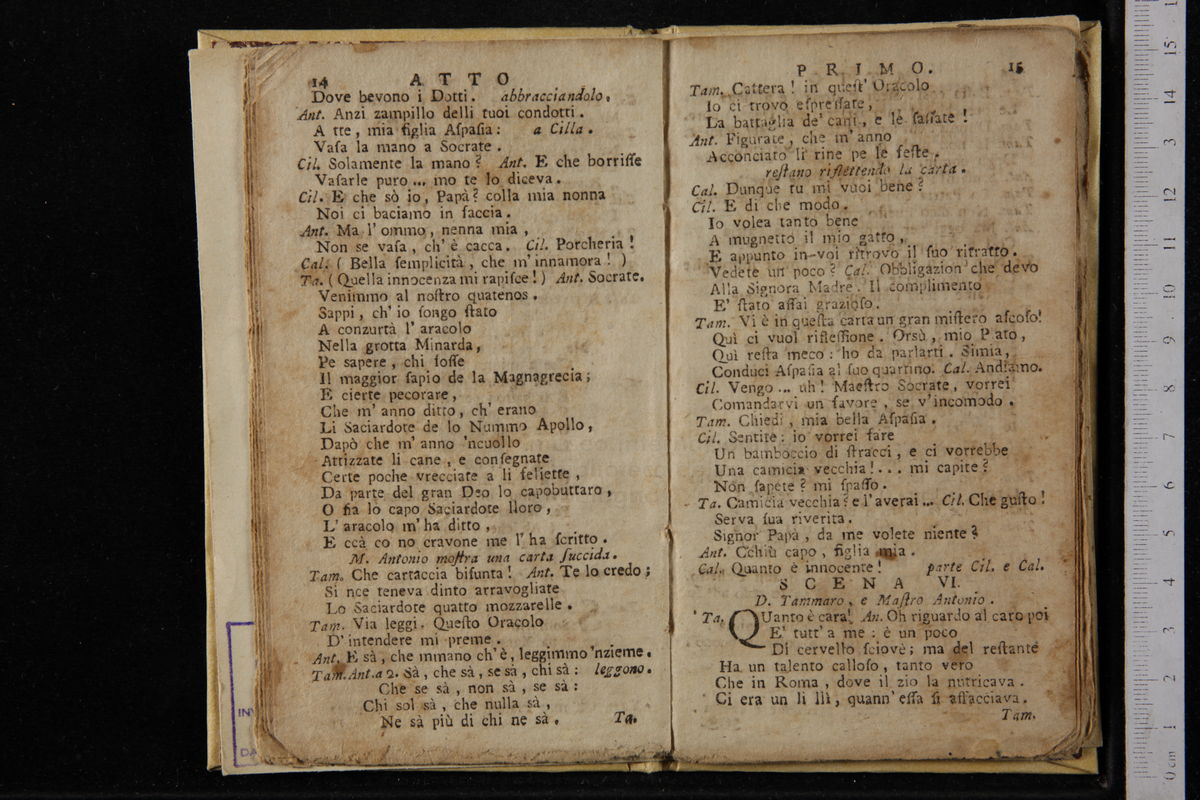 14 ATTO
Dove bevono i Dotti. abbracciandolo.
Ant. Anzi zampillo delli tuoi condotti.
A tte, mia figlia Aſpaſia: a Cilla.
Vaſa la mano a Socrate.
Cil. Solamente la mano? Ant. E che borriſſe
Vaſarle puro... mo te lo diceva.
Cil. E che sò io, Papà? colla mia nonna
Noi ci baciamo in faccia.
Ant. Ma l'ommo, nenna mia,
Non se vaſa, ch'è cacca. Cil. Porcheria!
Cal. (Bella ſemplicità, che m'innamora!)
Ta. (Quella innocenza mi rapiſce!) Ant. Socrate.
Venimmo al noſtro quatenos.
Sappi, ch'io ſongo ſtato
A conzurtà l'aracolo
Nella grotta Minarda,
Pe sapere, chi foſſe
Il maggior ſapio de la Magnagrecia;
E cierte pecorare,
Che m'anno ditto, ch'erano
Li Saciardote de lo Nummo Apollo,
Dapò che m'anno 'ncuollo
Attizzate li cane, e conſegnate
Certe poche vrecciate a li feliette,
Da parte del gran Deo lo capobuttaro,
O ſia lo capo Saciardote lloro,
L'aracolo m'ha ditto,
E ccà co no cravone me l'ha ſcritto.
M. Antonio moſtra una carta ſuccida.
Tam. Che cartaccia biſunta! Ant. Te lo credo;
Si nce teneva dinto arravogliate
Lo Saciardote quatto mozzarelle.
Tam. Via leggi. Queſto Oracolo
D'intendere mi preme.
Ant. E sà, che mmano ch'è, leggimmo 'nzieme.
Tam. Ant. a 2. Sà, che sà, se sà, chi sà: leggono.
Che se sà, non sà, se sà:
Chi sol sà, che nulla sà,
Ne sà più di chi ne sà. Ta.
PRIMO. 15
Tam. Cattera! in queſt'Oracolo
Io ci trovo eſpreſſate,
La battaglia de' cani, e le ſaſſate!
Ant. Figurate, che m'anno
Acconciato li rine pe le feſte.
reſtano riflettendo la carta.
Cal. Dunque tu mi vuoi bene?
Cil. E di che modo.
Io volea tanto bene
A mugnetto il mio gatto,
E appunto in voi ritrovo il ſuo ritratto.
Vedete un poco? Cal. Obbligazion che devo
Alla Signora Madre. Il complimento
E' ſtato aſſai grazioſo.
Tam. Vi è in queſta carta un gran miſtero aſcoſo!
Quì ci vuol rifleſſione. Orsù, mio Plato,
Quì reſta meco: ho da parlarti. Simia,
Conduci Aſpaſia al ſuo quartino. Cal. Andiamo.
Cil. Vengo... uh! Maeſtro Socrate, vorrei
Comandarvi un favore, se v'incomodo.
Tam. Chiedi, mia bella Aſpaſia.
Cil. Sentite: io vorrei fare
Un bamboccio di ſtracci, e ci vorrebbe
Una camicia vecchia!... mi capite?
Non ſapete? mi ſpaſſo.
Ta. Camicia vecchia? e l'averai... Cil. Che guſto!
Serva ſua riverita.
Signor Papà, da me volete niente?
Ant. Cchiù capo, figlia mia.
Cal. Quanto è innocente! parte Cil. e Cal.
SCENA VI.
D. Tammaro, e Maſtro Antonio.
Ta. QUanto è cara! An. Oh riguardo al caro poi
E' tutt'a me: è un poco
Di cervello ſciovè; ma del reſtante
Ha un talento calloſo, tanto vero
Che in Roma, dove il zio la nutricava.
Ci era un li lli, quann'eſſa ſi aſſacciava.
Tam.